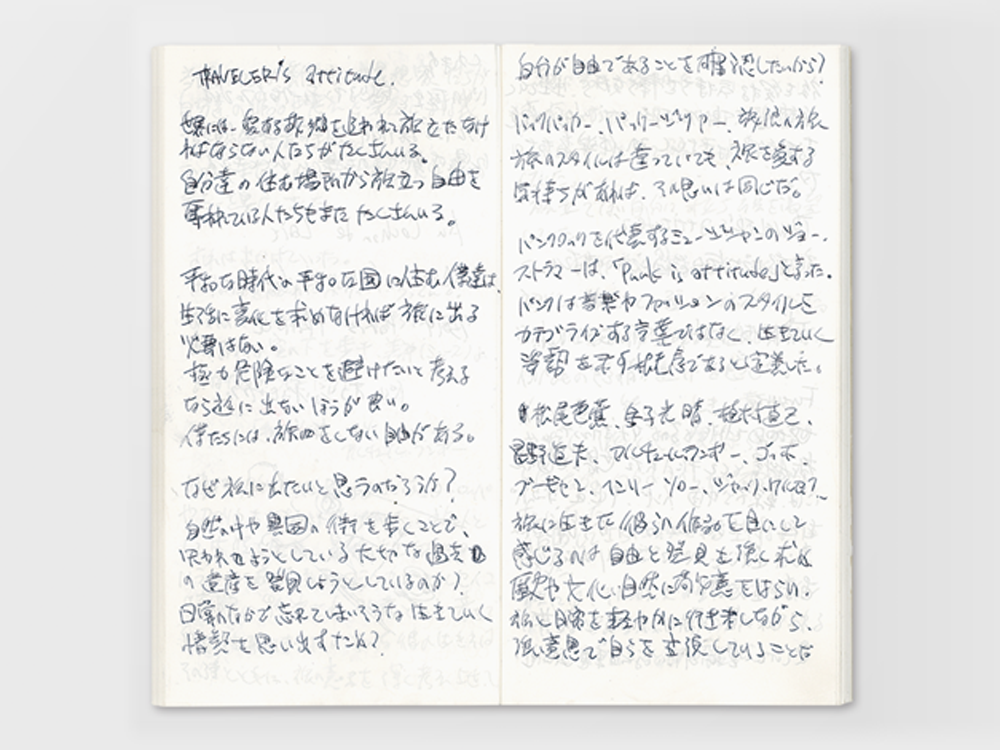 TRAVELER's attitude.
世界には、愛する故郷を追われ、旅立たなけ
ればならない人たちがたくさんいる。
自分達の住む場所から旅立つ自由を
奪われている人たちもまた たくさんいる。
平和な時代の平和な国に住む僕達は、
生活に変化を求めなければ 旅に出る
必要はない。
極力危険なことを避けたいと考える
なら逆に出ないほうが良い。
僕たちには、旅をしない自由がある。
なぜ旅に出たいと思うのだろうか?
自然の中や異国の街を歩くことで、
失われようとしている大切な過去
の遺産を発見しようとしているのか?
日常のなかで忘れてしまいそうな 生きていく
情熱を思い出すため?
自分が自由であることを確認したいから?
バックパッカー、パッケージツアー、放浪の旅
旅のスタイルは違っていても、旅を愛する
気持ちがあれば、その思いは同じだ。
パンクロックを代表するミュージシャンのジョー・
ストラマーは、「Punk is attitude」と言った。
パンクは音楽やファッションのスタイルを
カテゴライズする言葉ではなく、生きていく
姿勢を示す概念であると定義した。
松尾芭蕉、金子光晴、植村直己、
星野道夫、アルチュールランボー、ゴッホ、
ゴーギャン、ヘンリー・ソロー、ジャック・ケルアック
旅に生きた彼らの作品を目にして
感じるのは 自由と発見を強く求め
歴史や文化、自然に敬意をはらい、
旅と日常を軽やかに行き来しながら、
強い意思で自らを主張していることだ